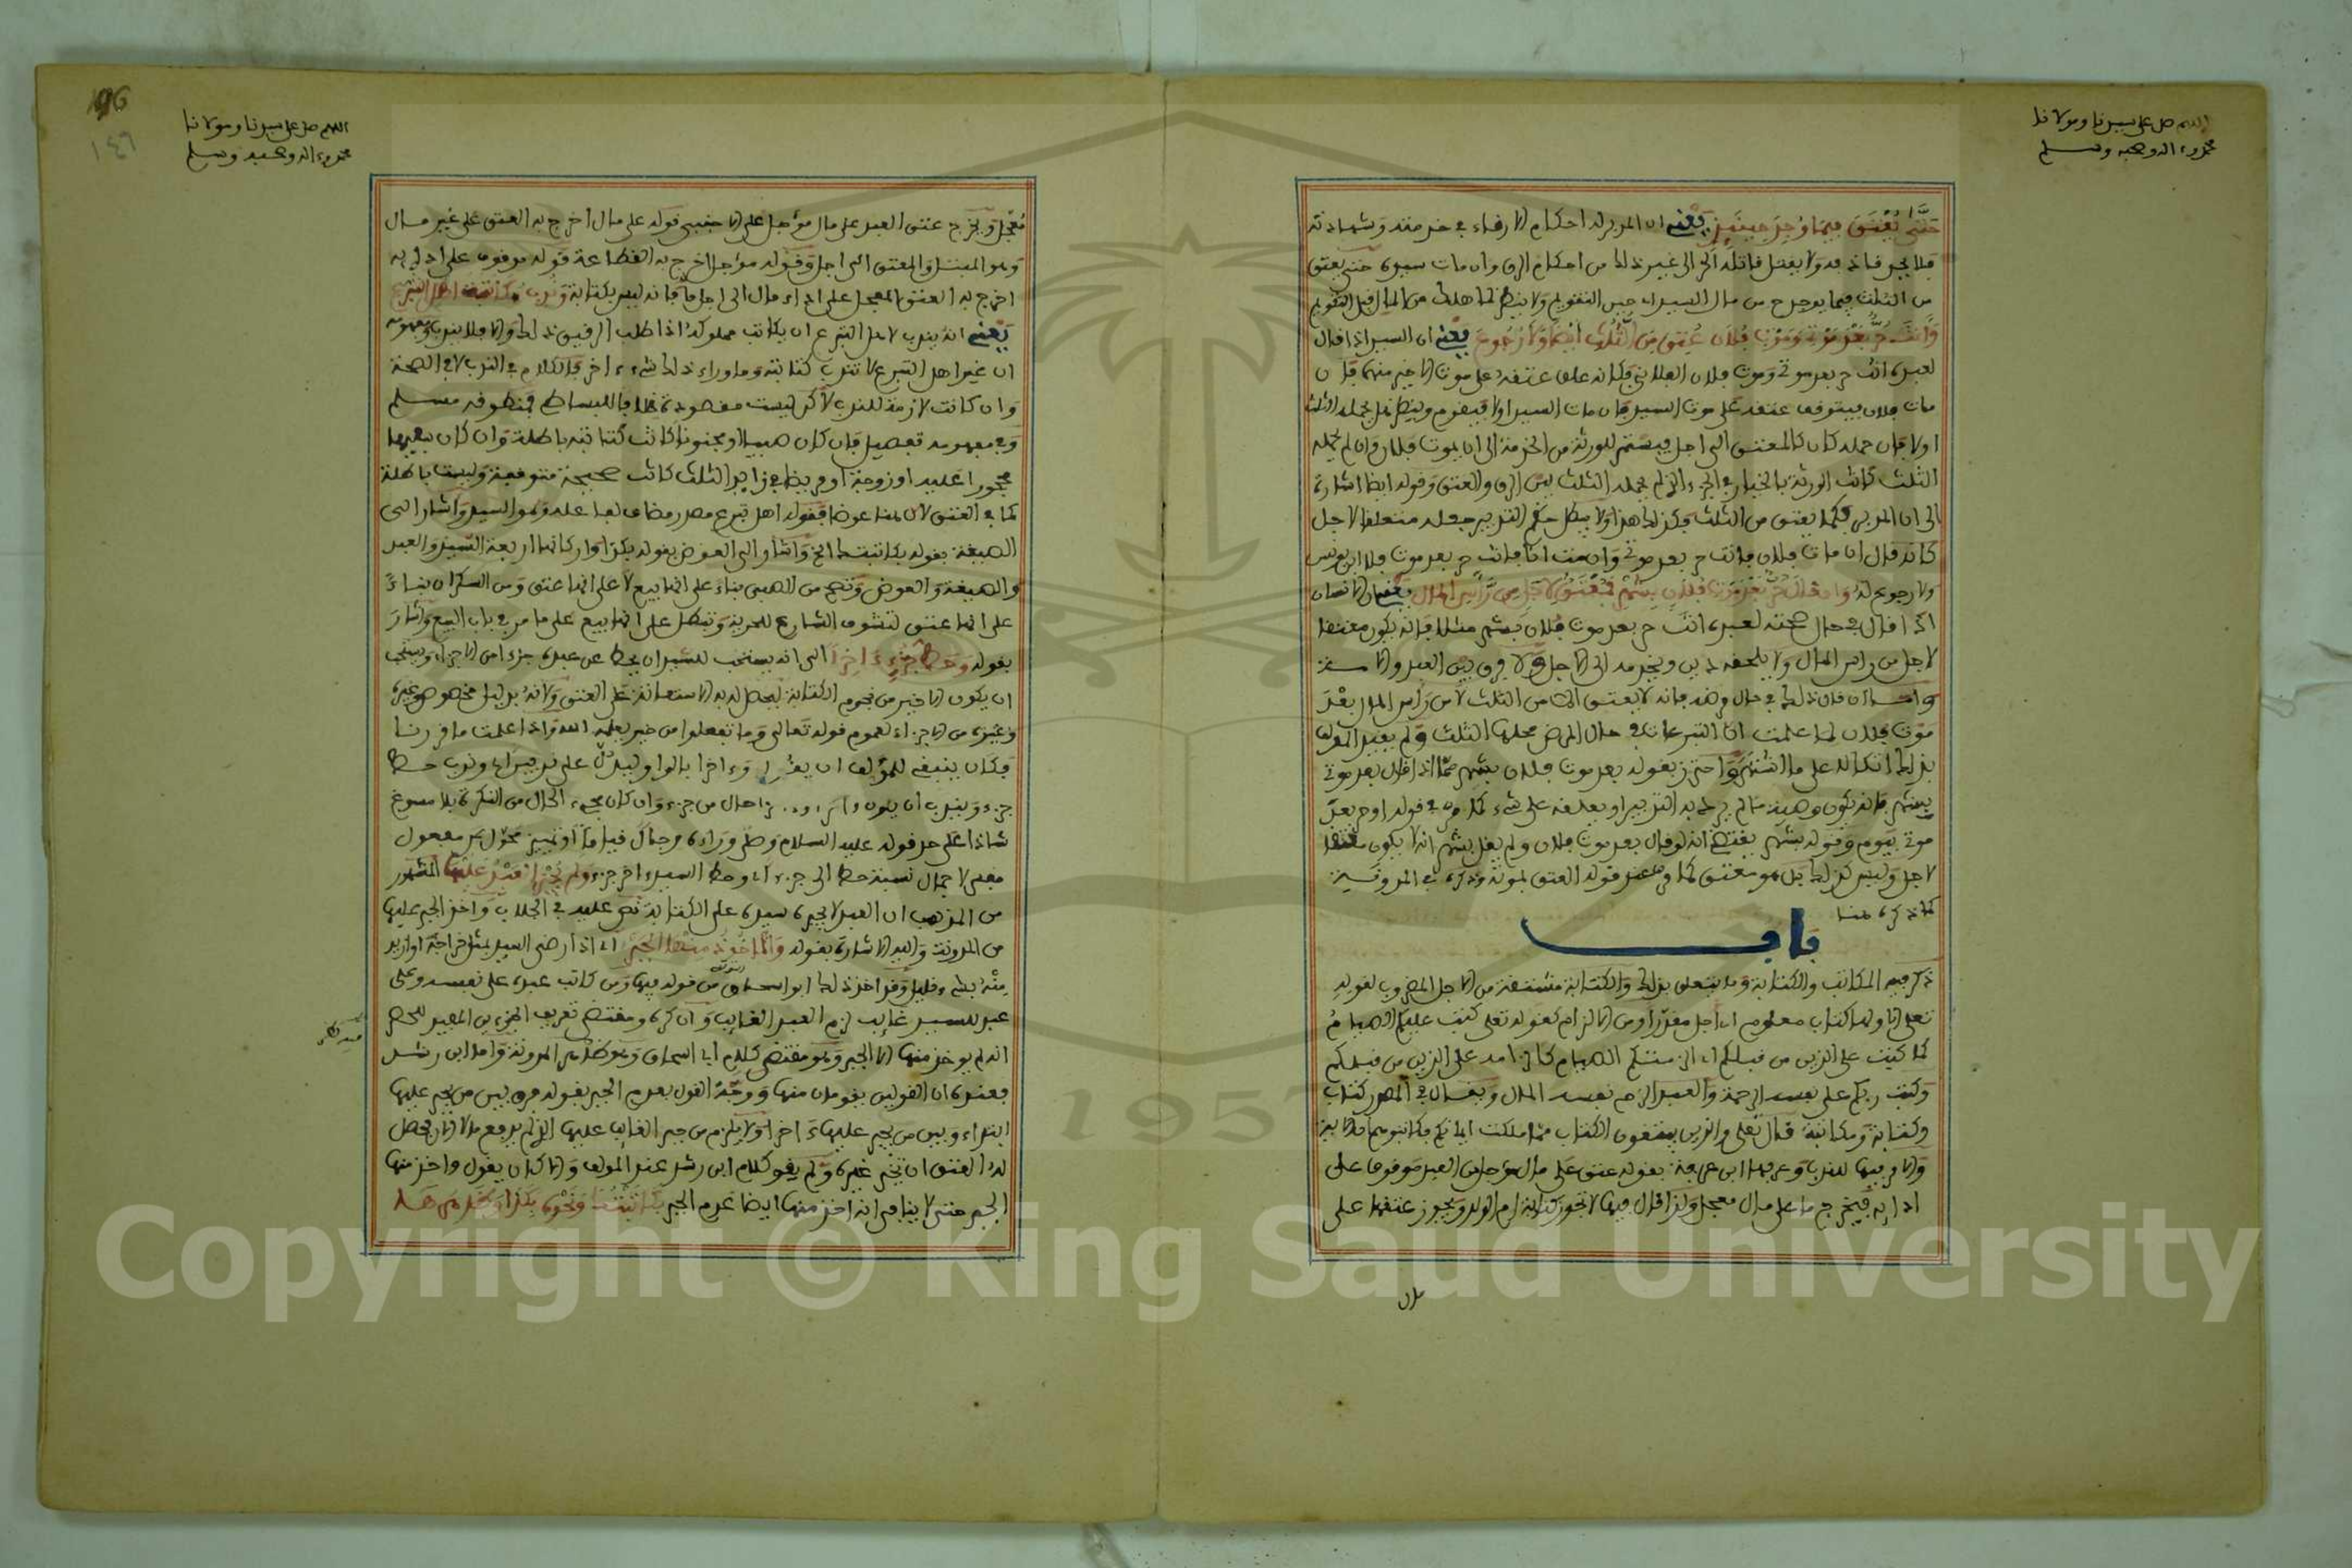 اللهم صل على سيدنا ومولانا
محمد وءاله وصحبه وسلم
حتى يعتق فيما وجد حينئذ يعني ان المدبر له احكام الارقاء في خدمته وشهادته
فلا يحد قاذفه ولا يقتل قاتله الحر الى غير ذلك من احكام الرق وان مات سيده حتى يعتق
من الثلث فيما يوجد من مال السيد حين التقويم ولا ينظر لما هلك من المال قبل التقويم
وانت حر بعد موتي وموت فلان عتق من الثلث ايضا ولا رجوع يعني ان السيد اذا قال
لعبده انت حر بعد موتي وموت فلان الفلاني فكانه علق عتقه على موت الاخير منهما فان
مات فلان فيتوقف عتقه على موت السيد فان مات السيد اولا فيقوم وينظر هل يحمله الثلث
اولا فان حمله كان كالمعتق الى اجل فيستمر للورثة من الخدمة الى ان يموت فلان وان لم يحمله
الثلث كانت الورثة بالخيار في الجزء الذي لم يحمله الثلث بين الرق والعتق وقوله ايضا اشارة
الى ان المدبر كما يعتق من الثلث فكذلك هذا ولا يبطل حكم التدبير جعله متعلقا لاجل
كانه قال ان مات فلان فانت حر بعد موتي وان مت انا فانت حر بعد موت فلان ابن يونس
ولا رجوع له وان قال حر بعد موت فلان بشهر فمعتق لاجل من راس المال يعني ان الانسان
اذا قال في حال صحته لعبده انت حر بعد موت فلان بشهر مثلا فانه يكون معتقا
لاجل من راس المال ولا يلحقه دين ويخدمه الى الاجل ولا فرق بين العبد والامة
واما ان قال ذلك في حال مرضه فانه لا يعتق الا من الثلث لا من راس المال بعد
موت فلان لما علمت ان التبرعات في حال المرض محلها الثلث ولم يقيد المؤلف
بذلك اتكالا على ما اشتهر واحترز بقوله بعد موت فلان بشهر مما اذا قال بعد موتي
بشهر فانه يكون وصية ما لم يرد به التدبير او يعلقه على شيء كما مر في قوله او حر بعد
موتي بيوم وقوله بشهر يقتضي انه لو قال بعد موت فلان ولم يقل بشهر انه لا يكون معتقا
لاجل وليس كذلك بل هو معتق كما مر عند قوله العتق لموته وذكره في المدونة
كما ذكره هنا
باب
ذكر فيه المكاتب والكتابة وما يتعلق بذلك والكتابة مشتقة من الاجل المضروب لقوله
تعلى الا ولها كتاب معلوم اي اجل مقدر او من الالزام كقوله تعلى كتب عليكم الصيام
كما كتب على الذين من قبلكم اي الزمتكم الصيام كالزامه على الذين من قبلكم
وكتب ربكم على نفسه الرحمة والعبد الزم نفسه المال ويقال في المصدر كتاب
وكتابة ومكاتبة قال تعلى والذين يبتغون الكتاب مما ملكت ايمانكم فكاتبوهم فالاية
والامر فيها للندب وعرفها ابن عرفة بقوله عتق على مال مؤجل من العبد موقوف على
ادائه فيخرج ما على مال معجل ولذا قال فيها لا تجوز كتابة ام الولد ويجوز عتقها على
مال
196
١٤٦
اللهم صل على سيدنا ومولانا
محمد وءاله وصحبه وسلم
معجل ويخرج عتق العبد على مال مؤجل على الاجنبي فقوله على مال اخرج به العتق على غير مال
وهو المبتل والمعتق الى اجل وقوله مؤجل اخرج به القطاعة قوله موقوف على ادائه
اخرج به العتق المعجل على اداء مال الى اجل فانه ليس بكتابة وندب مكاتبة اهل التبرع
يعني انه يندب لاهل التبرع ان يكاتب مملوكه اذا طلب الرقيق ذلك والا فلا يندب ومفهومه
ان غير اهل التبرع لا تندب كتابته وما وراء ذلك شيء ءاخر فالكلام في الندب لا في الصحة
وان كانت لازمة للندب لكن ليست مقصودة فمنطوقه مسلم
وفي مفهومه تفصيل فان كان صبيا او مجنونا كانت كتابته باطلة وان كان سفيها
محجورا عليه او زوجة او مريضا في زايد الثلث كانت صحيحة متوقفة وليست باطلة
كما في العتق لان هنا عوضا فقوله اهل تبرع مصدر مضاف لفاعله وهو السيد واشار الى
الصيغة بقوله بكاتبتك الخ واشار الى العوض بقوله بكذا واركانها اربعة السيد والعبد
والصيغة والعوض وتصح من الصبي بناء على انها بيع لا على انها عتق ومن السكران بناء
على انها عتق لتشوف الشارع للحرية وتبطل على انها بيع على ما مر في باب البيع واشار
بقوله وحط جزء ءاخرا الى انه يستحب للسيد ان يحط عن عبده جزءا من الاجزاء ويستحب
ان يكون الاخير من نجوم الكتابة ليحصل له به الاستعانة على العتق ولانه بدليل مخصوص غيره
وغيره من الاجزاء لعموم قوله تعالى وما تفعلوا من خير يعلمه الله واذا علمت ما قررنا
فكان ينبغي للمؤلف ان يقول وءاخرا بالواو ليدل على ندبين اي وندب حط
جزء ويندب ان يكون ءاخرا حال من جزء وان كان مجيء الحال من النكرة بلا مسوغ
شاذا على حد قوله عليه السلام وصلى وراءه رجال قياما او تمييز محول عن مفعول
معنى لاجمال نسبة حط الى جزء اي وحط السيد ءاخر جزء ولم يجبر العبد عليها المشهور
من المذهب ان العبد لا يجبره سيده على الكتابة نص عليه في الجلاب واخذ الجبر عليها
من المدونة واليه الاشارة بقوله والماخوذ منها الجبر اي اذا رضي العبد بمثل خراجه او ازيد
منه بشيء قليل وقد اخذ ذلك ابو اسحاق من قوله فيها ومن كاتب عبده على نفسه وعلى
عبد للسيد غايب لزم العبد الغايب وان كره ومقتضى تعريف الجزءين المفيد للحصر
انه لم يوخذ منها الا الجبر وهو مقتضى كلام ابي اسحاق وهو ظاهر المدونة واما ابن رشد
فعنده ان القولين يقومان منها ووجه القول بعدم الجبر بقوله فرق بين من يجبر عليها
ابتداء وبين من يجبر عليها ءاخرا ولا يلزم من جبر الغايب عليها الذي لم يدفع مالا ان يحصل
له العتق ان يجبر غيره ولم يقو كلام ابن رشد عند المؤلف والا كان يقول واخذ منها
الجبر حتى لا ينافي انه اخذ منها ايضا عدم الجبر بكاتبتك ونحوه بكذا وظاهرها